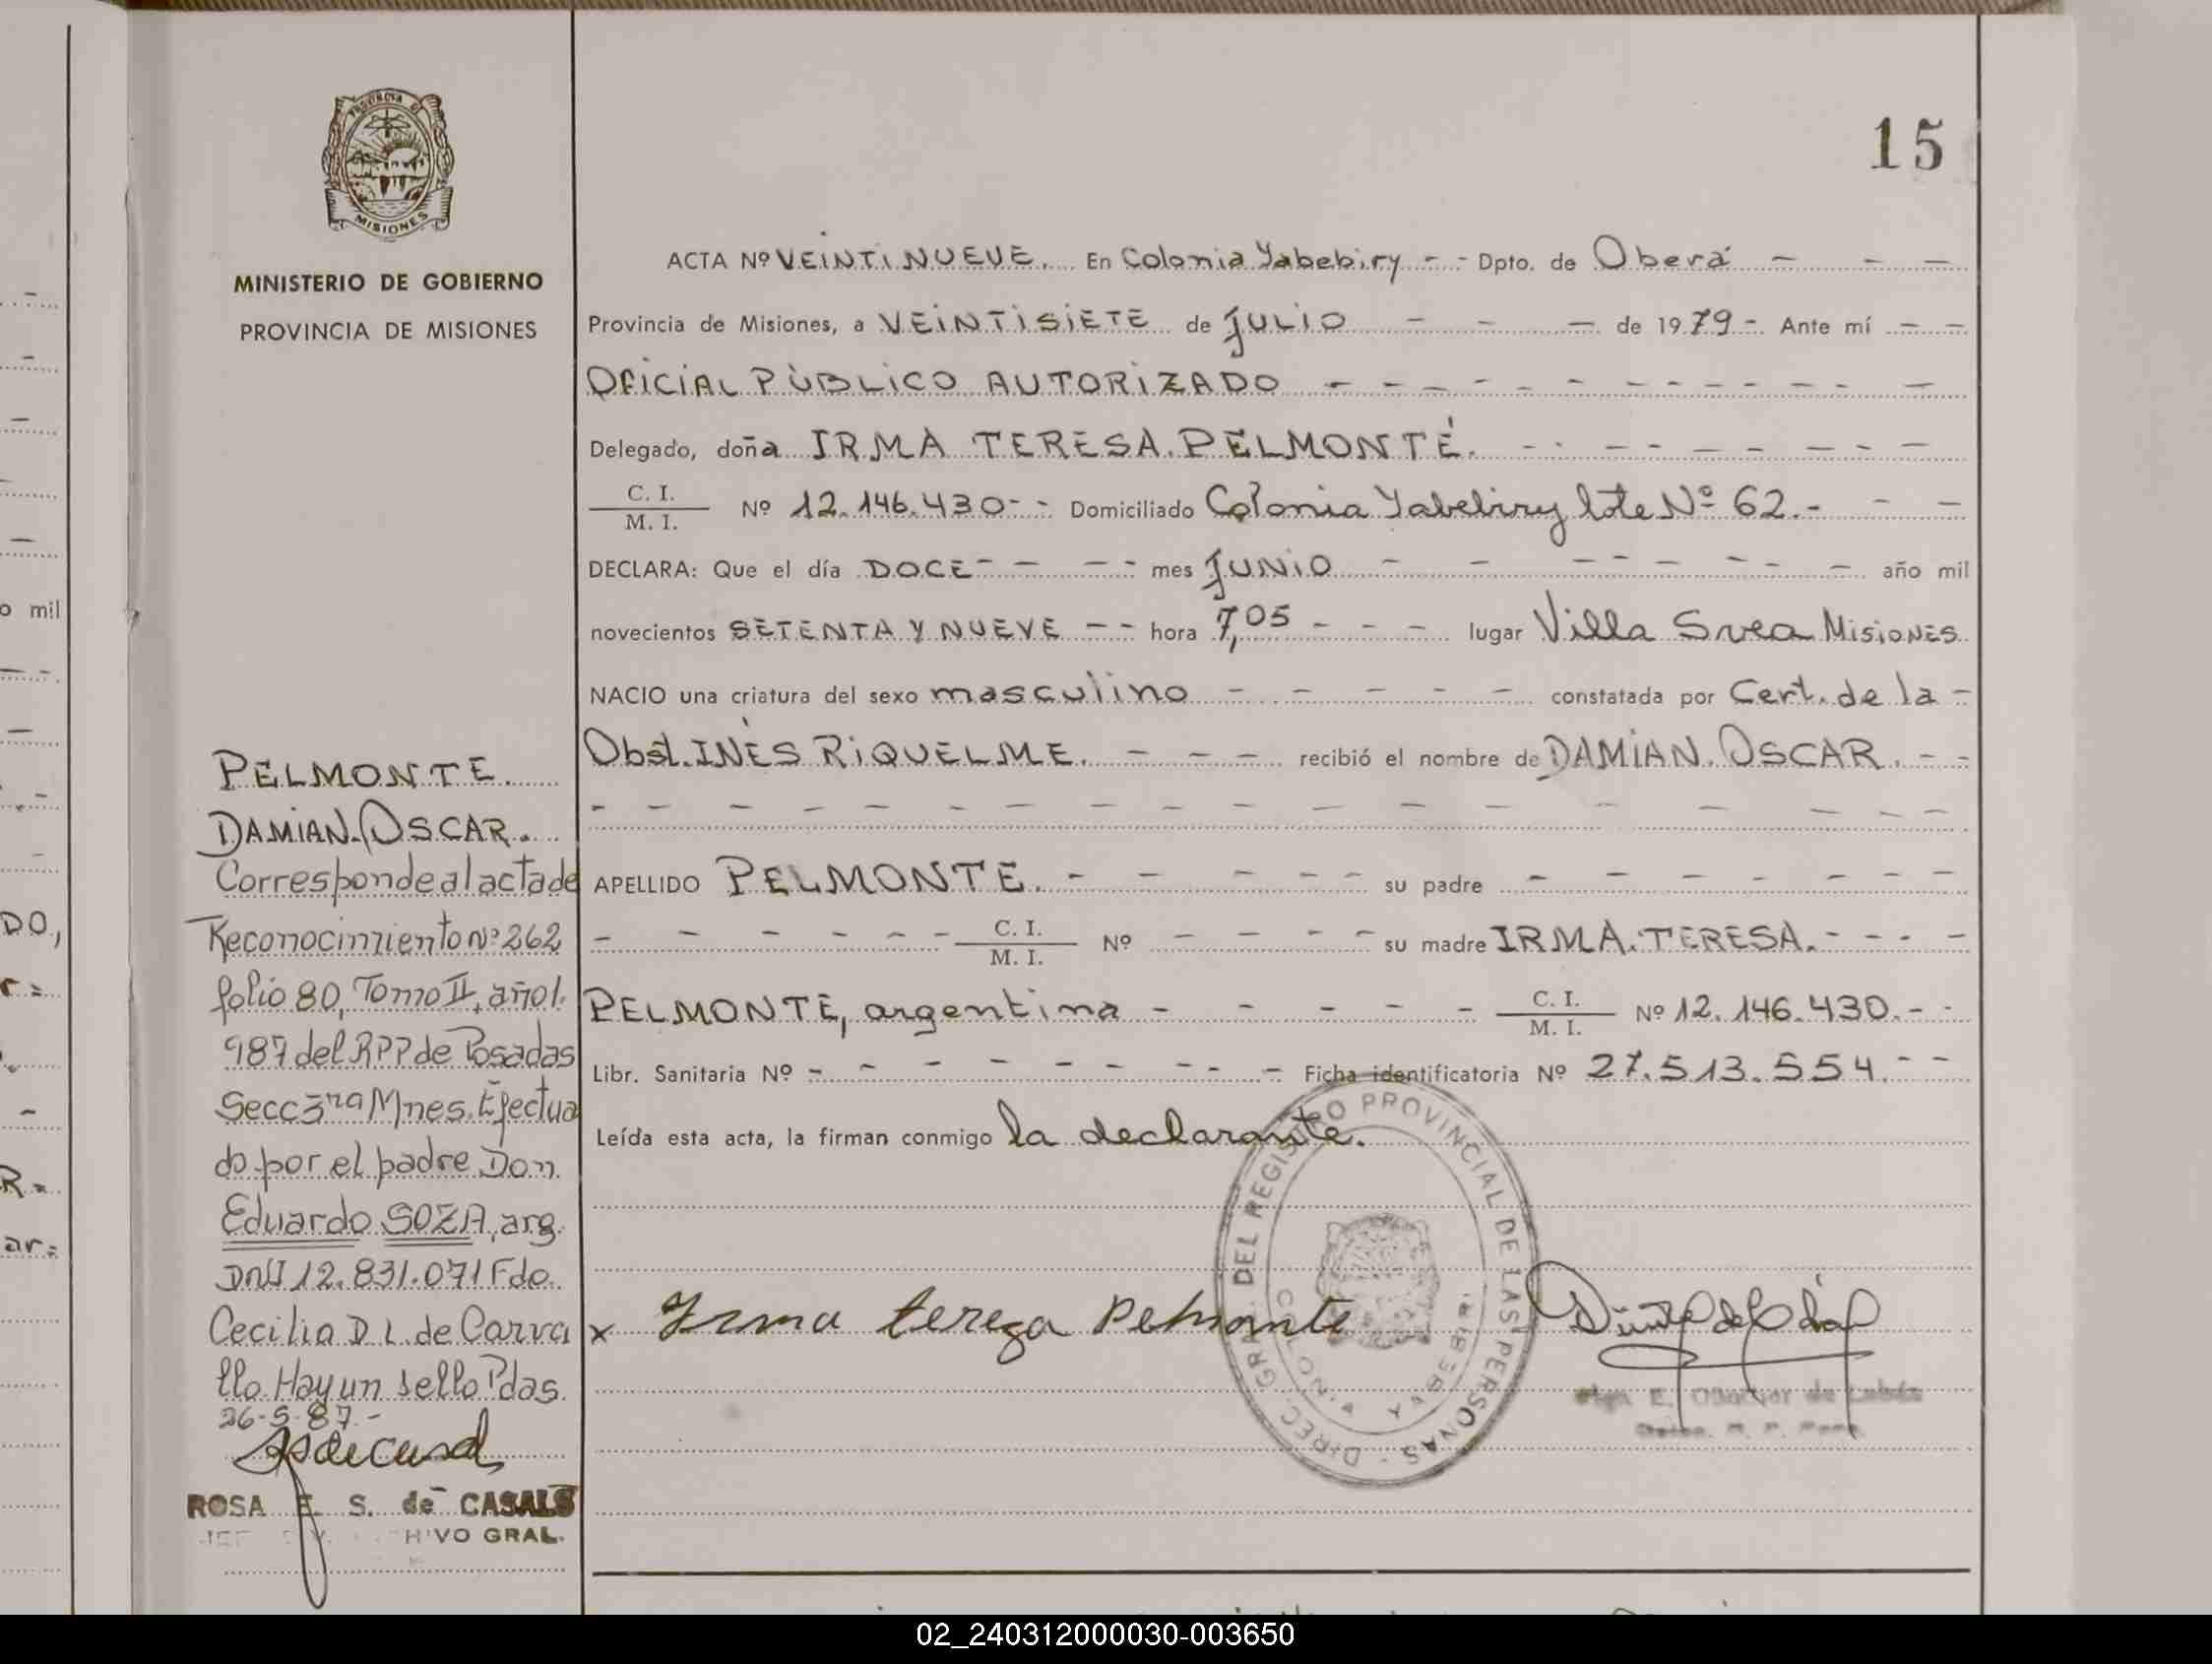 PROVINCIA DE
MISIONES
MINISTERIO DE GOBIERNO
PROVINCIA DE MISIONES
PELMONTE.
DAMIAN. OSCAR.
Corresponde al acta de
Reconocimiento Nº 262
folio 80, Tomo II, año 1.
987 del RPP de Posadas
Secc 3ra Mnes. Efectua
do por el padre Don
Eduardo SOZA, arg.
DNI 12.831.071 Fdo.
Cecilia D L. de Carva
llo. Hay un sello Pdas.
26-5-87.-
ROSA E. S. de CASALS
HIVO GRAL.
15
ACTA Nº VEINTINUEVE. En Colonia Yabebiry - - Dpto. de Oberá - - -
Provincia de Misiones, a VEINTISIETE de JULIO - - - de 1979 - Ante mí - -
OFICIAL PÚBLICO AUTORIZADO - - - - - - - - - - -
Delegado, doña IRMA TERESA. PELMONTE. - - - - - - - -
C. I.
M. I. Nº 12.146.430 - - Domiciliado Colonia Yabebiry lote Nº 62.- - -
DECLARA: Que el día DOCE - - - - mes JUNIO - - - - - - - - año mil
novecientos SETENTA Y NUEVE - - hora 7,05 - - - lugar Villa Svea MISIONES
NACIO una criatura del sexo masculino - - - - - constatada por Cert. de la -
Obst. INÉS RIQUELME. - - - recibió el nombre de DAMIAN. OSCAR. - -
- - - - - - - - - - - - - - - - - -
APELLIDO PELMONTE. - - - - - su padre - - - - - - -
- - - - - - C. I.
M. I. Nº - - - - su madre IRMA. TERESA. - - - -
PELMONTE, argentina - - - - - C. I.
M. I. Nº 12.146.430. - -
Libr. Sanitaria Nº - - - - - - - - Ficha identificatoria Nº 27.513.554. - -
Leída esta acta, la firman conmigo la declarante.
DIREC. GRAL. DEL REGISTRO PROVINCIAL DE LAS PERSONAS -
COLONIA YABEBIRI
x Irma tereza Pelmonte
02_240312000030-003650